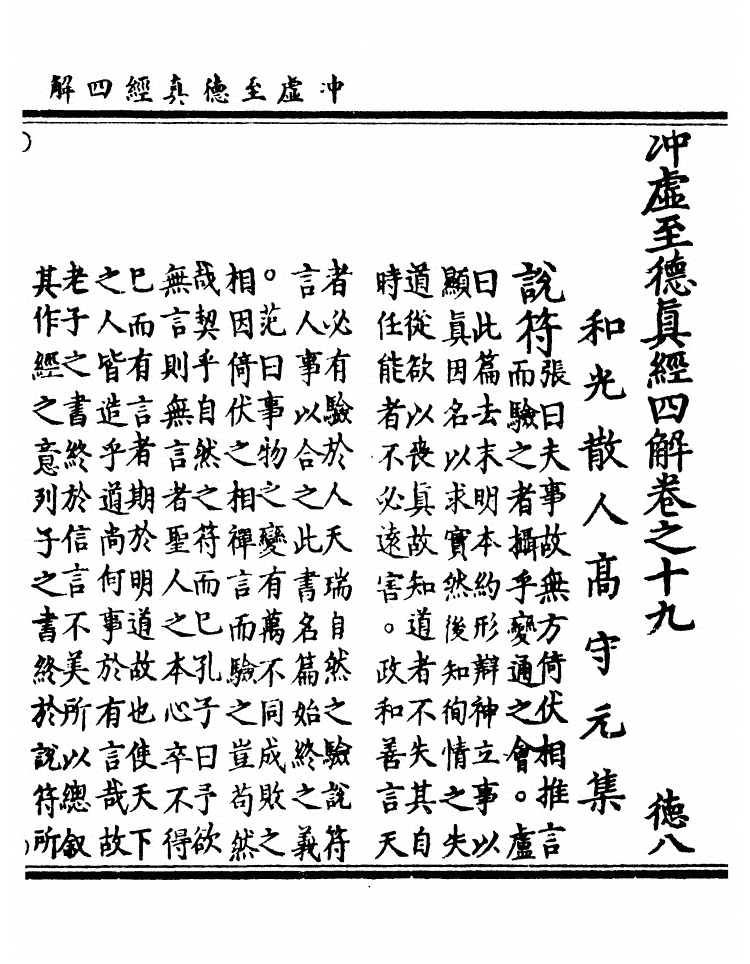 冲虛至德真經四解
冲虛至德眞經四解卷之十九 德八
和光散人高守元集
說符
張曰夫事故無方倚伏相推言
而驗之者攝乎變通之會。盧
曰此篇去末明本約形辯神立事以
顯真因名以求實然後知徇情之失
道從欲以喪真故知道者不失其自
時任能者不必遠害。政和善言天
者必有驗於人天瑞自然之驗說符
言人事以合之此書名篇始終之義
。范曰事物之變有萬不同成敗之
相因倚伏之相禪言而驗之豈苟然
哉契乎自然之符而已孔子曰予欲
無言則無言者聖人之本心卒不得
已而有言者期於明道故也使天下
之人皆造乎道尚何事於有言哉故
老子之書終於信言不美所以總叙
其作經之意列子之書終於說符所